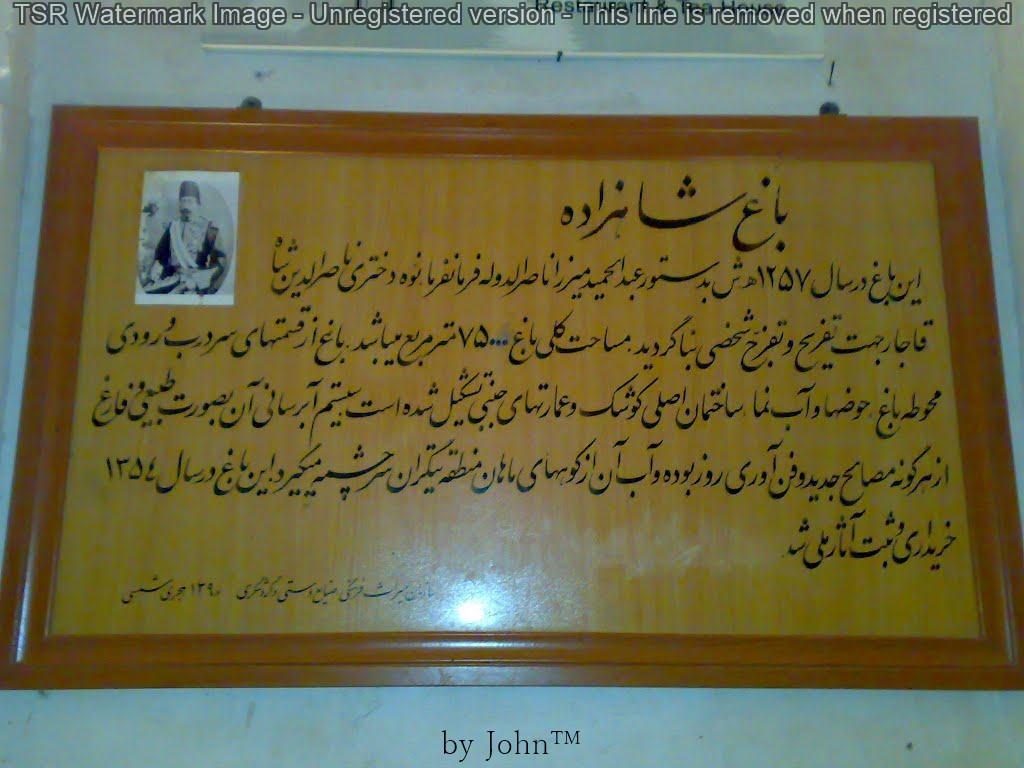 TSR Watermark Image - Unregistered version - This line is removed when registered
Restaurant & Tea House
باغ شاهزاده
این باغ در سال ۱۲۵۷ه ش بدستور عبدالحمید میرزا ناصرالدوله فرمانفرما نوه دختری ناصرالدین شاه
قاجار جهت تفریح و تفرج شخصی بنا گردید. مساحت کلی باغ ۷۵۰۰۰ متر مربع میباشد. باغ از قسمتهای سر درب ورودی
محوطه باغ، حوضها و آب نما، ساختمان اصلی کوشک و عمارتهای جنبی تشکیل شده است سیستم آبرسانی آن بصورت طبیعی و فارغ
از هر گونه مصالح جدید و فن آوری روز بوده و آب آن از کوههای ماهان منطقه تیگران سرچشمه میگیرد. این باغ در سال ۱۳۵۴
خریداری و ثبت آثار ملی شد
سازمان میراث فرهنگی، صنایع دستی و گردشگری ۱۳۹۰ هجری شمسی
by John™